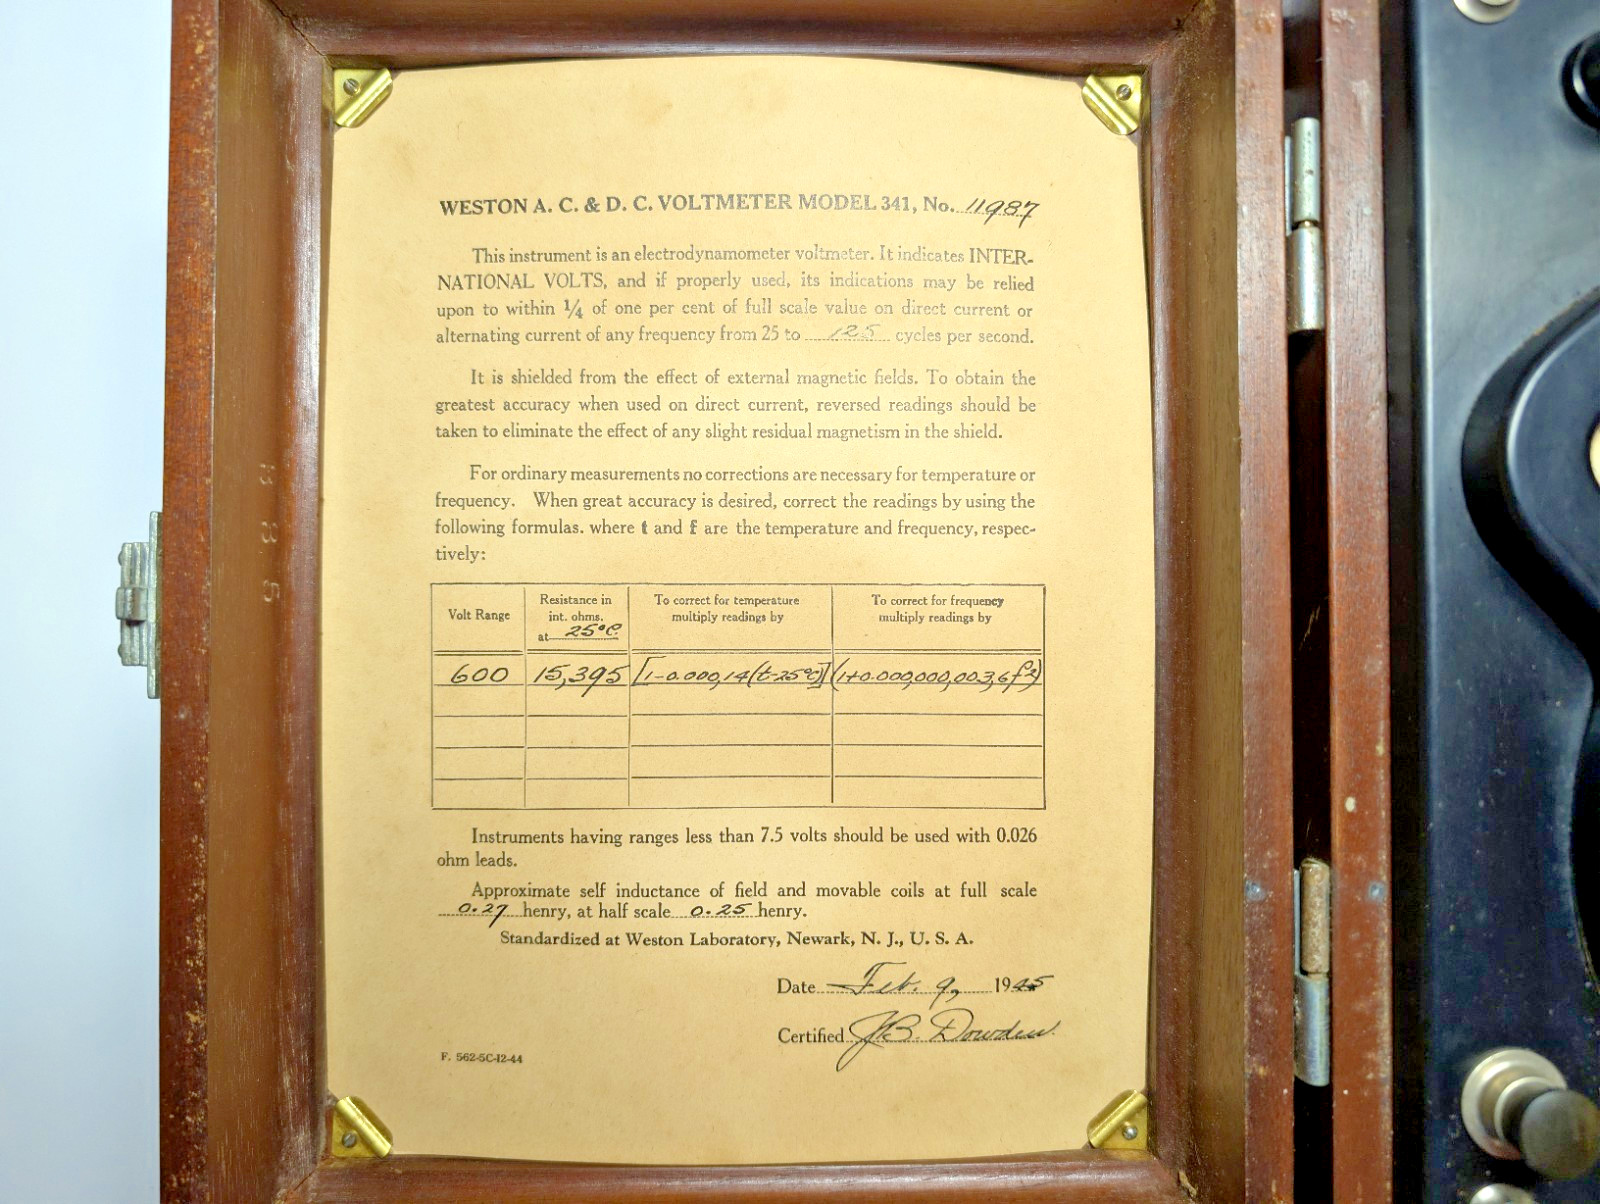 WESTON A. C. & D. C. VOLTMETER MODEL 341, No. 11987
This instrument is an electrodynamometer voltmeter. It indicates INTER-
NATIONAL VOLTS, and if properly used, its indications may be relied
upon to within ¼ of one per cent of full scale value on direct current or
alternating current of any frequency from 25 to 125 cycles per second.
It is shielded from the effect of external magnetic fields. To obtain the
greatest accuracy when used on direct current, reversed readings should be
taken to eliminate the effect of any slight residual magnetism in the shield.
For ordinary measurements no corrections are necessary for temperature or
frequency. When great accuracy is desired, correct the readings by using the
following formulas. where t and f are the temperature and frequency, respec-
tively:
Volt Range
Resistance in
int. ohms.
at 25°C.
To correct for temperature
multiply readings by
To correct for frequency
multiply readings by
600 15,395 [1-0.000,14(t-25°C)] (1+0.000,000,003,6f²)
Instruments having ranges less than 7.5 volts should be used with 0.026
ohm leads.
Approximate self inductance of field and movable coils at full scale
0.27 henry, at half scale 0.25 henry.
Standardized at Weston Laboratory, Newark, N. J., U. S. A.
Date Feb. 9, 1945
Certified J.B. Dowden.
F. 562-5C-12-44